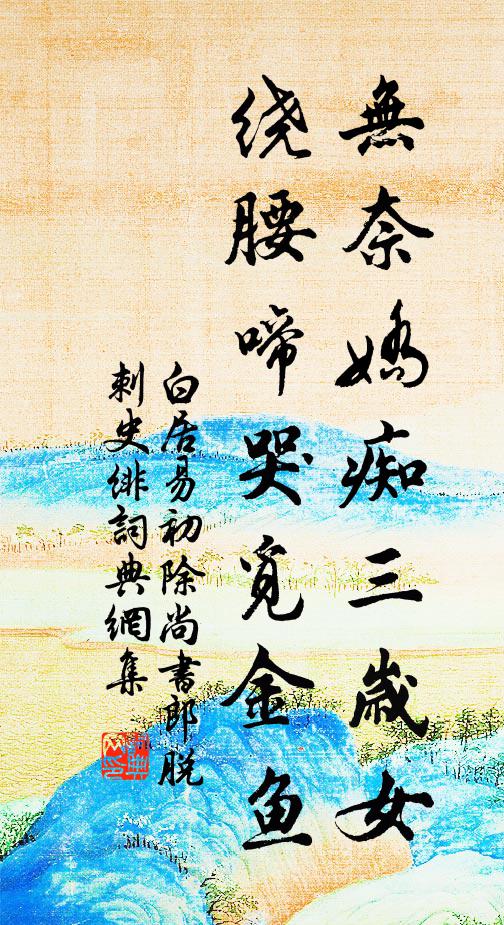 無奈嬌痴三歲女
绕腰啼哭覓金鱼
白居易初除尚書郎脱
刺史緋詞典網集